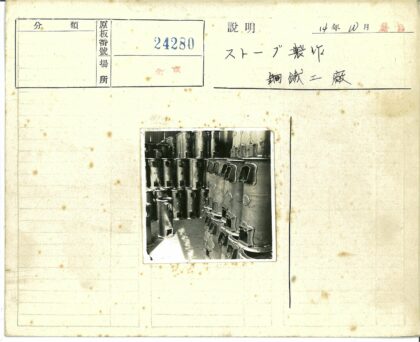 分類
原板番號
24280
場所
説明
14年10月
ストーブ製作
鋼鐵工廠